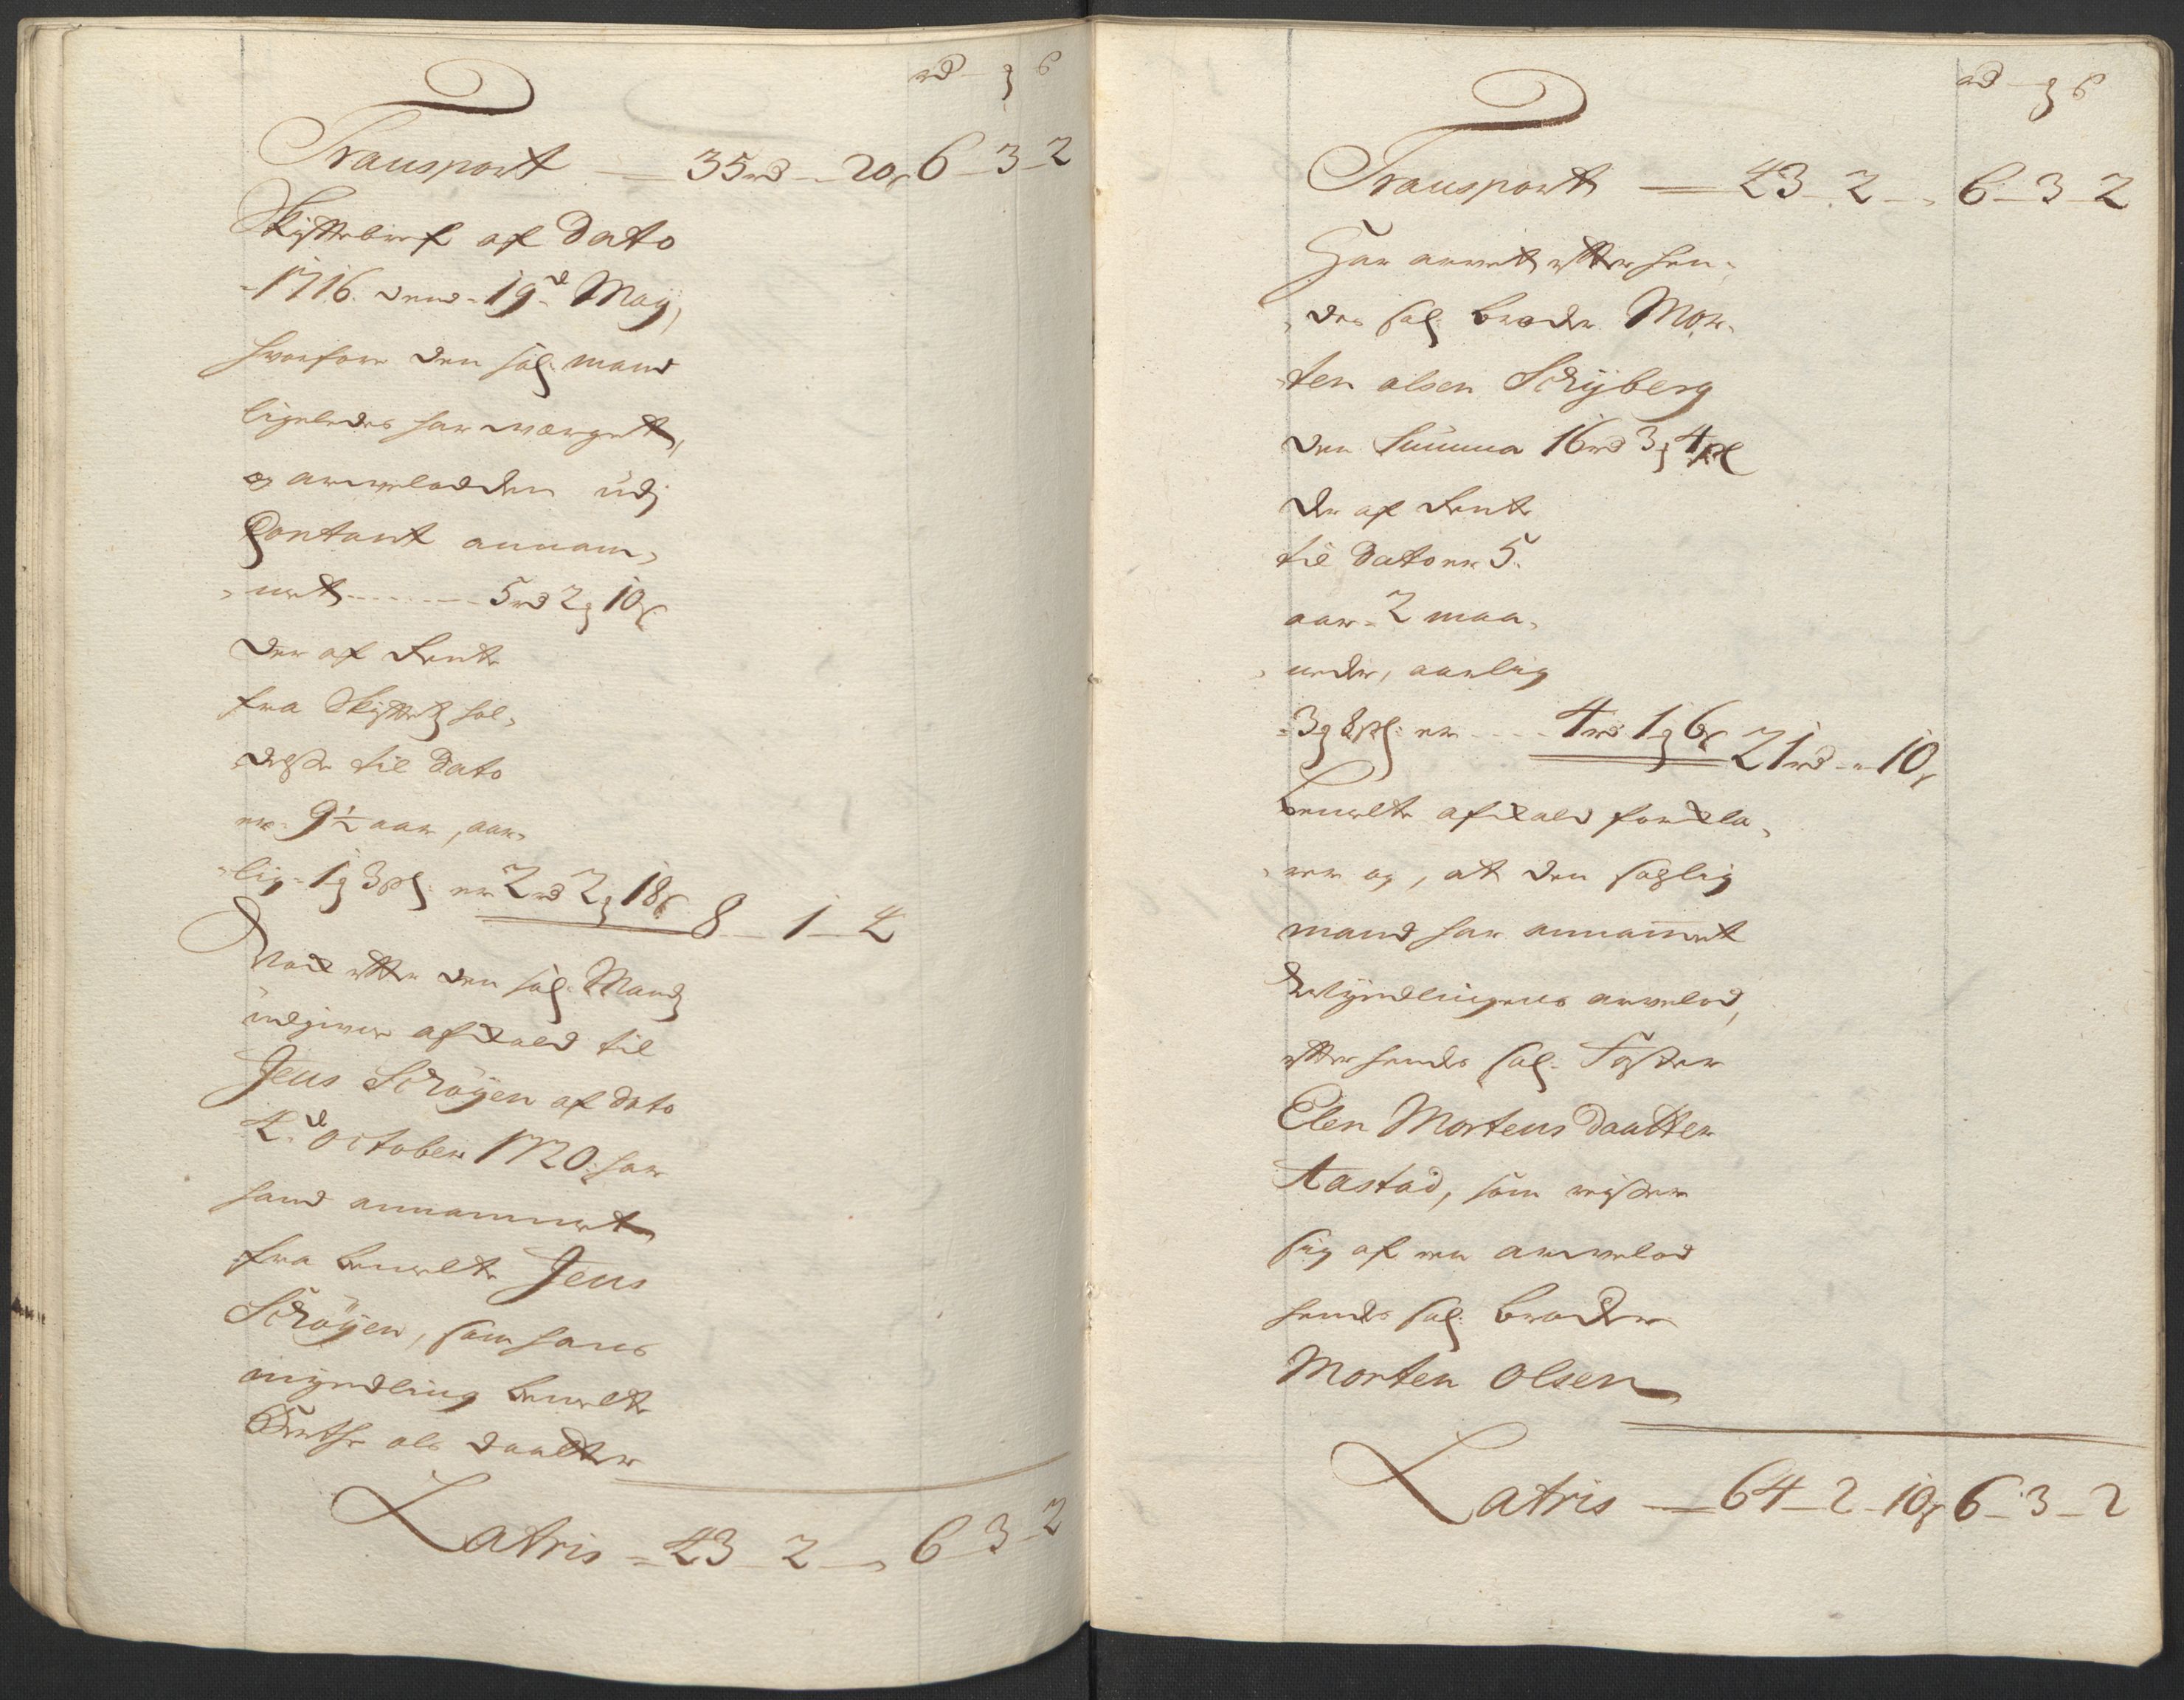 rd ȝ ß
Transport — 35 rd - 20 ß 6 - 3 - 2
Skiftebref af Dato
1716. dend 19d May,
hvorfore den sal. mand
ligeledes har værget,
og arvelodden udj
Contant annam„
„met ------- 5 rd 2 ȝ 10 ß
Der af Rente
fra Skiftetz hol„
delse til Dato
er 9½ aar, aar„
„lig 1 ȝ 3 ß: er 2 rd 2 ȝ 18 ß 8 - 1 - 4
Nock efter den sal. Mandz
udgivne afkald til
Jens Schøyen af dato
4d October 1720: har
hand annammet
fra bemelte Jens
Schøyen, som hans
myndling bemelte
Grethe ols daatter
Latris = 43 - 2 - „ 6 - 3 - 2
rd - ȝ ß
Transport — 43 - 2 - „ 6 - 3 - 2
Har arvet efter hen„
„des sal. broder Mor„
„ten olsen Schyberg
den Summa 16 rd 3 ȝ 4 ß
der af Rente
til Dato er 5.
aar 2 maa„
„neder, aarlig
3 ȝ 8 ß: er ---- 4 rd 1 ȝ 6 ß 21 rd - „ 10 ß
bemelte afkald forkla„
„rer og, at den sahlig
mand har annammet
Myndlingens arvelod,
efter hendes sal. Faster
Elen Mortens daatter
Aastad, som reiser
sig af en arvelod
hendes sal. broder
Morten Olsen
Latris — 64 - 2 - 10 ß 6 - 3 - 2